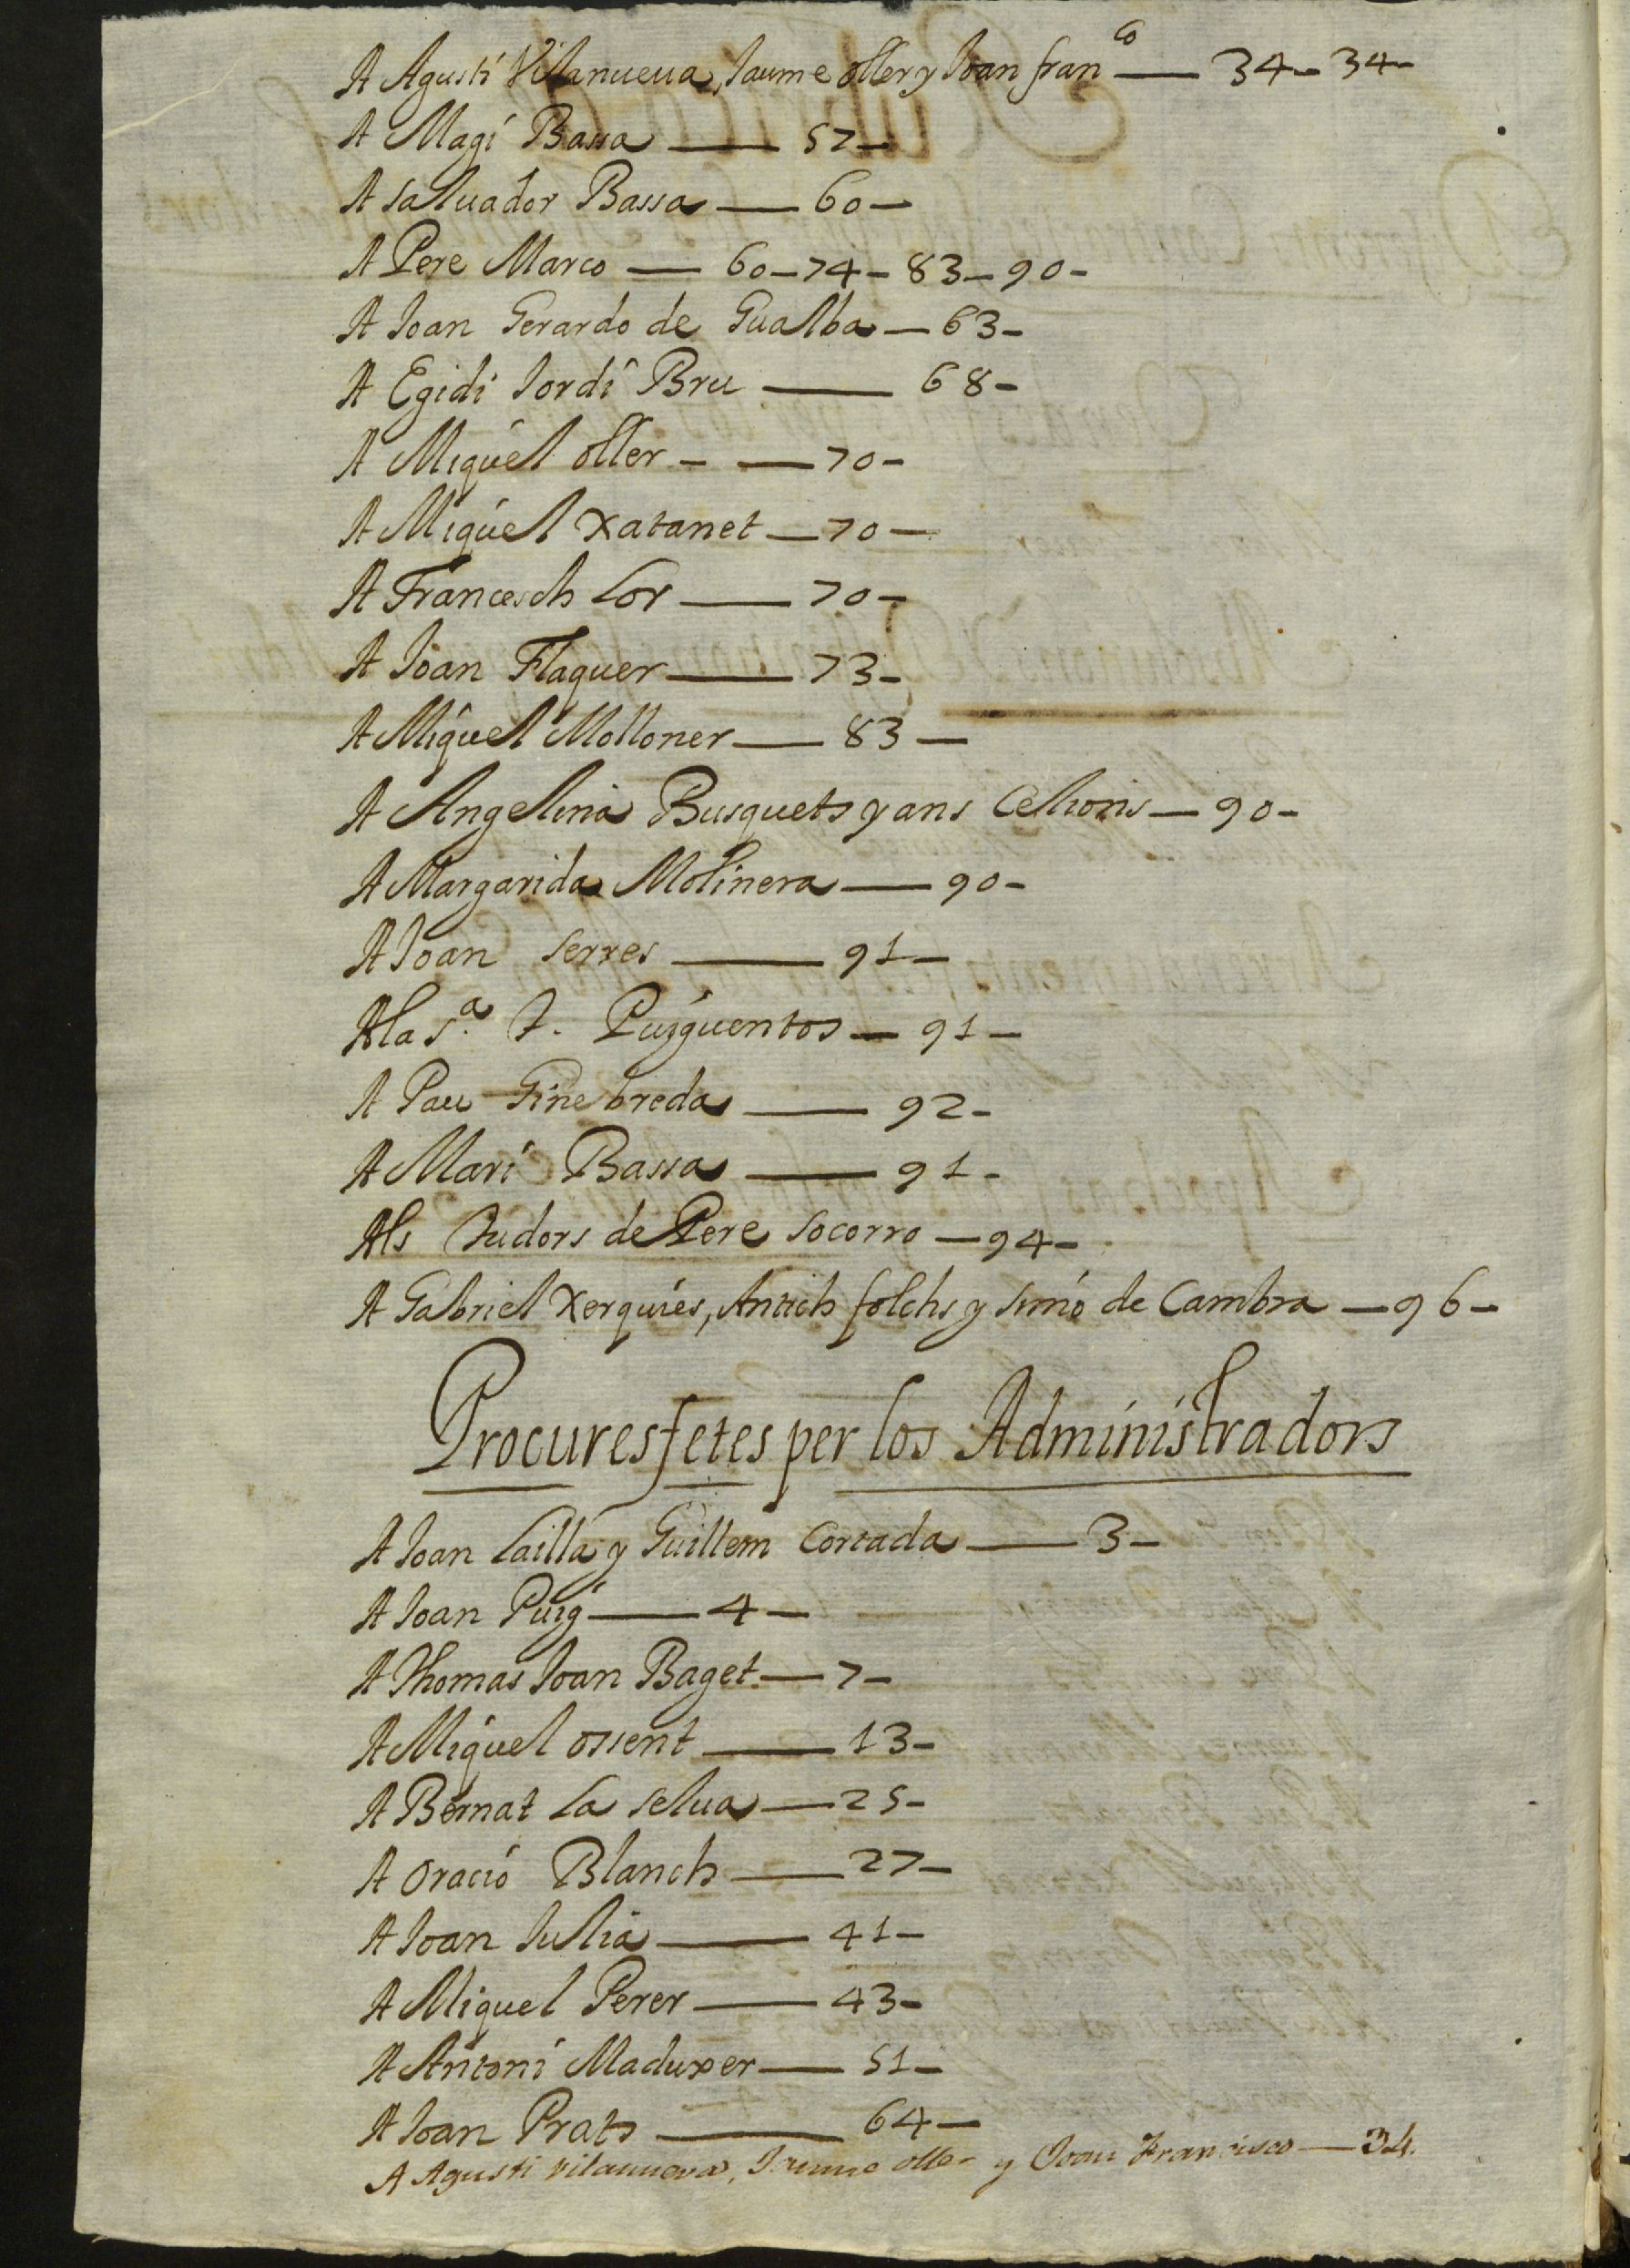 A Agustí Vilanueua, Jaume oller y Joan franco — 34 - 34 -
A Magí Bassa — 57 -
A Saluador Bassa — 60 -
A Pere Marco — 60 - 74 - 83 - 90 -
A Joan Gerardo de Gualba — 63 -
A Egidi Jordi Bru — 68 -
A Miquel oller - — 70 -
A Miquel Xatanet — 70 -
A Francesch Lor — 70 -
A Joan Flaquer — 73 -
A Miquel Molloner — 83 -
A Angelina Busquets y ans Cellioris — 90 -
A Margarida Molinera — 90 -
A Joan Serres — 91 -
A la Sa. T. Puiguentos — 91 -
A Pau Ginebreda — 92 -
A Mari Bassa — 91 -
Als Tudors de Pere Socorro — 94 -
A Gabriel Xerquies, Antich folchs y Simó de Cambra — 96 -
Procures fetes per los Administradors
A Joan Lailla y Guillem Cortada — 3 -
A Joan Puig — 4 -
A Thomas Joan Baget — 7 -
A Miquel ossent — 13 -
A Bernat La Selua — 25 -
A Oració Blanch — 27 -
A Joan Julia — 41 -
A Miquel Perer — 43 -
A Antoni Maduxer — 51 -
A Joan Prats — 64 -
A Agusti Vilanueva, Jaume oller y Joan Francisco — 34.